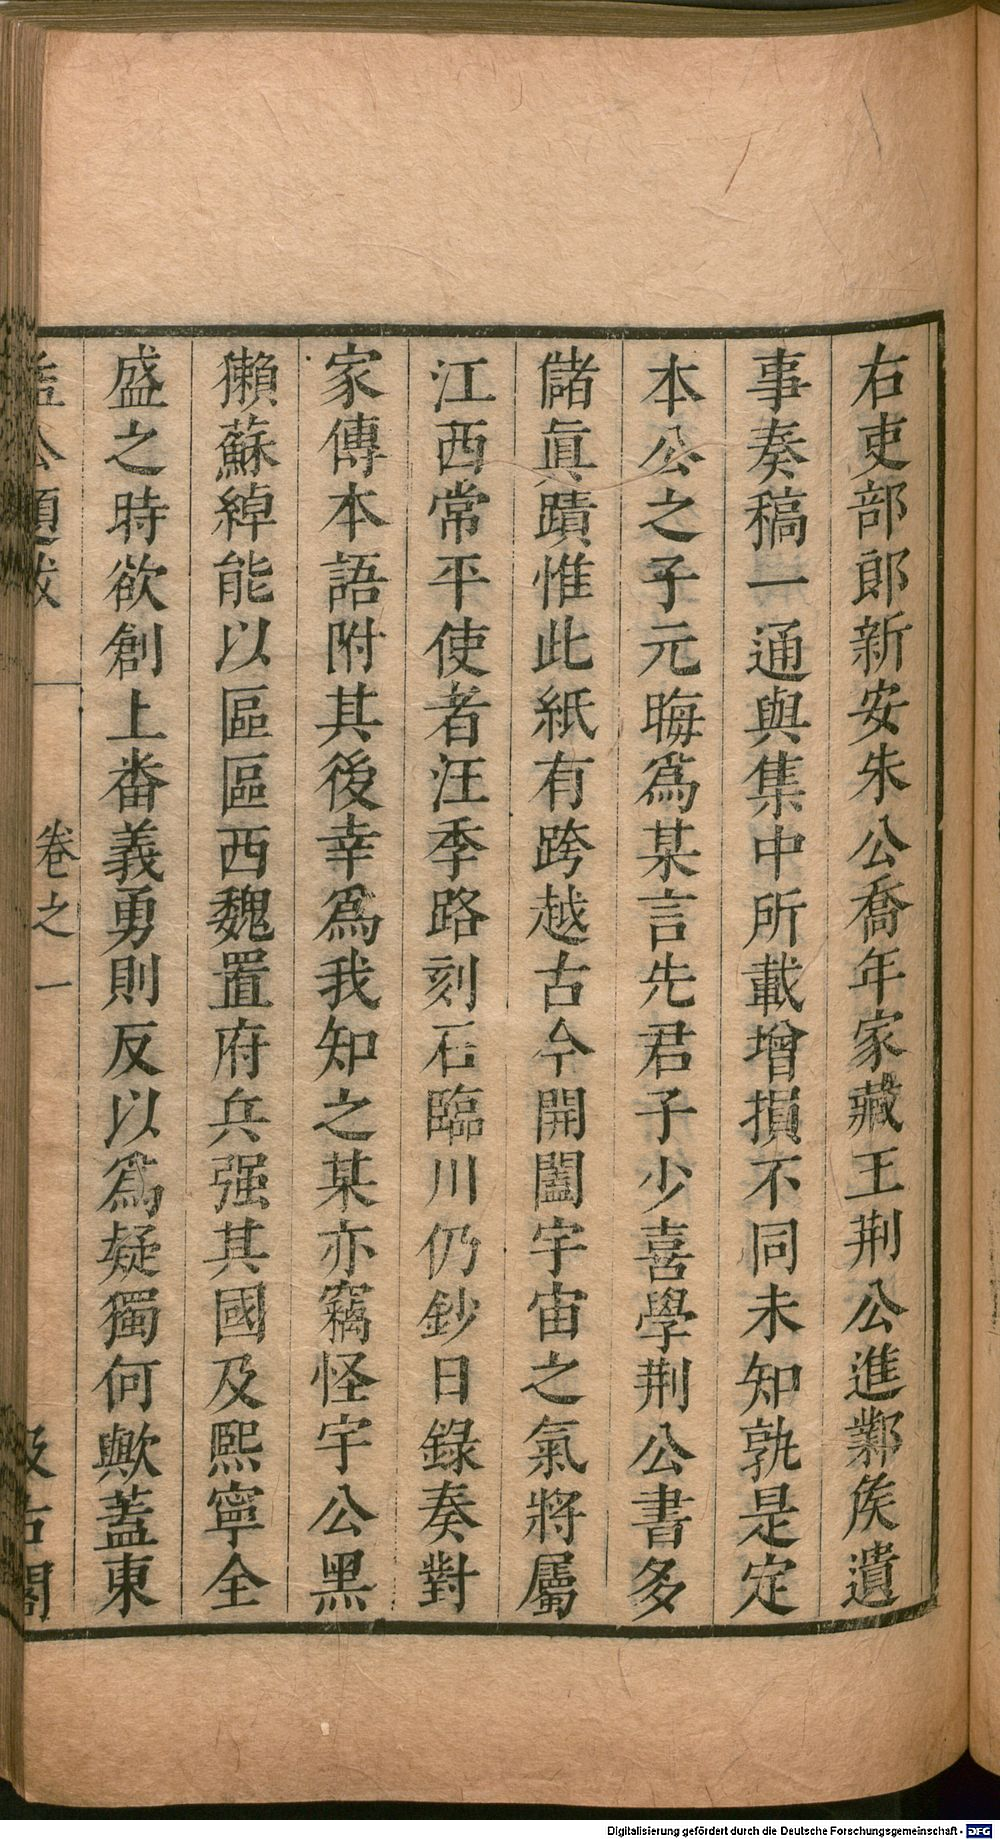 右吏部郎新安朱公喬年家藏王荆公進鄴侯遺
事奏稿一通與集中所載增損不同未知孰是定
本公之子元晦爲某言先君子少喜學荆公書多
儲眞蹟惟此紙有跨越古今開闔宇宙之氣將屬
江西常平使者汪季路刻石臨川仍鈔日錄奏對
家傳本語附其後幸爲我知之某亦竊怪宇公黑
獺蘇綽能以區區西魏置府兵强其國及熙寧全
盛之時欲創上番義勇則反以爲疑獨何歟蓋東
益公題跋 卷之一 汲古閣
Digitalisierung gefördert durch die Deutsche Forschungsgemeinschaft - DFG